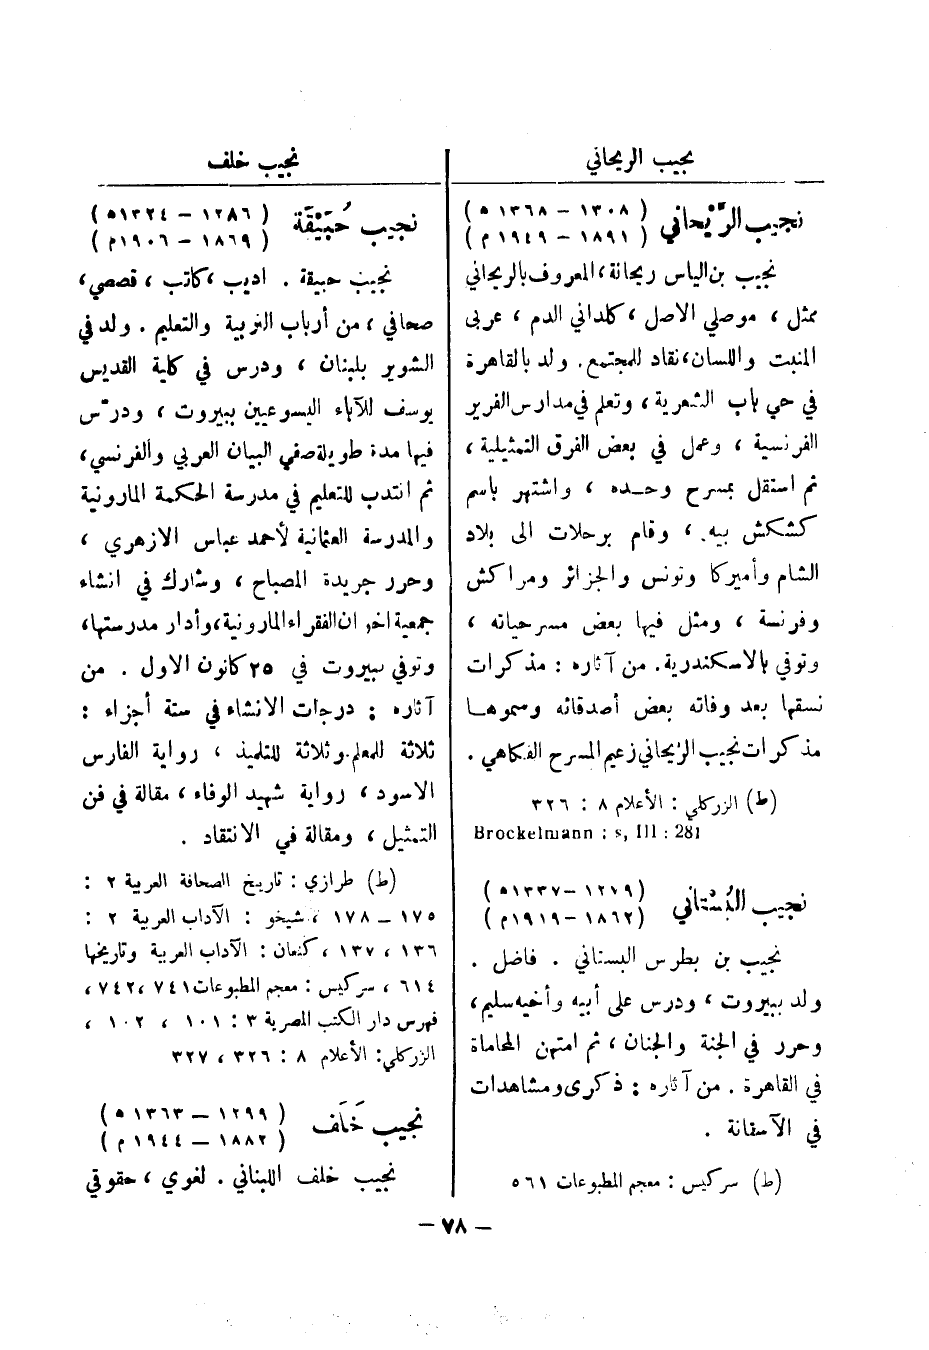 نجيب الريحاني
نجيب الرَّيْحاني
( ١٣٠٨ – ١٣٦٨ ه )
( ١٨٩١ – ١٩٤٩ م )
نجيب بن الياس ريحانة ، المعروف بالريحاني
ممثل ، موصلي الاصل ، كلداني الدم ، عربي
المنبت واللسان ، نقاد للمجتمع . ولد بالقاهرة
في حي باب الشعرية ، وتعلم في مدارس الفرير
الفرنسية ، وعمل في بعض الفرق التمثيلية ،
ثم استقل بمسرح وحده ، واشتهر باسم
كشكش بيه . ، وقام برحلات الى بلاد
الشام وأميركا وتونس والجزائر ومراكش
وفرنسة ، ومثل فيها بعض مسرحياته ،
وتوفي بالاسكندرية . من آثاره : مذكرات
نسقها بعد وفاته بعض أصدقائه وسموها
مذكرات نجيب الريحاني زعيم المسرح الفكاهي .
(ط) الزركلي : الأعلام ٨ : ٣٢٦
Brockelmann : s, III : 281
نجيب البُسْتاني
( ١٢٧٩ – ١٣٣٧ه )
( ١٨٦٢ – ١٩١٩م )
نجيب بن بطرس البستاني . فاضل .
ولد ببيروت ، ودرس على أبيه وأخيه سليم ،
وحرر في الجنة والجنان ، ثم امتهن المحاماة
في القاهرة . من آثاره : ذكرى ومشاهدات
في الآستانة .
(ط) سركيس : معجم المطبوعات ٥٦١
نجيب خلف
نجيب حُبَيْقَة
( ١٢٨٦ – ١٣٢٤ه )
( ١٨٦٩ – ١٩٠٦م )
نجيب حبيقة . اديب ، كاتب ، قصصي ،
صحافي ، من أرباب التربية والتعليم . ولد في
الشوير بلبنان ، ودرس في كلية القديس
يوسف للآباء اليسوعيين ببيروت ، ودرّس
فيها مدة طويلة صفي البيان العربي والفرنسي ،
ثم انتدب للتعليم في مدرسة الحكمة المارونية
والمدرسة العثمانية لأحمد عباس الازهري ،
وحرر جريدة المصباح ، وشارك في انشاء
جمعية اخوان الفقراء المارونية ، وأدار مدرستها ،
وتوفي ببيروت في ٢٥ كانون الاول . من
آثاره : درجات الانشاء في ستة أجزاء :
ثلاثة للمعلم وثلاثة للتلميذ ، رواية الفارس
الاسود ، رواية شهيد الوفاء ، مقالة في فن
التمثيل ، ومقالة في الانتقاد .
(ط) طرازي : تاريخ الصحافة العربية ٢ :
١٧٥ – ١٧٨ ، شيخو : الآداب العربية ٢ :
١٣٦ ، ١٣٧ ، كنعان : الآداب العربية وتاريخها
٦١٤ ، سركيس : معجم المطبوعات ٧٤١ ، ٧٤٢ ،
فهرس دار الكتب المصرية ٣ : ١٠١ ، ١٠٢ ،
الزركلي : الأعلام ٨ : ٣٢٦ ، ٣٢٧
نجيب خَلَف
( ١٢٩٩ – ١٣٦٣ ه )
( ١٨٨٢ – ١٩٤٤ م )
نجيب خلف اللبناني . لغوي ، حقوقي
– ٧٨ –